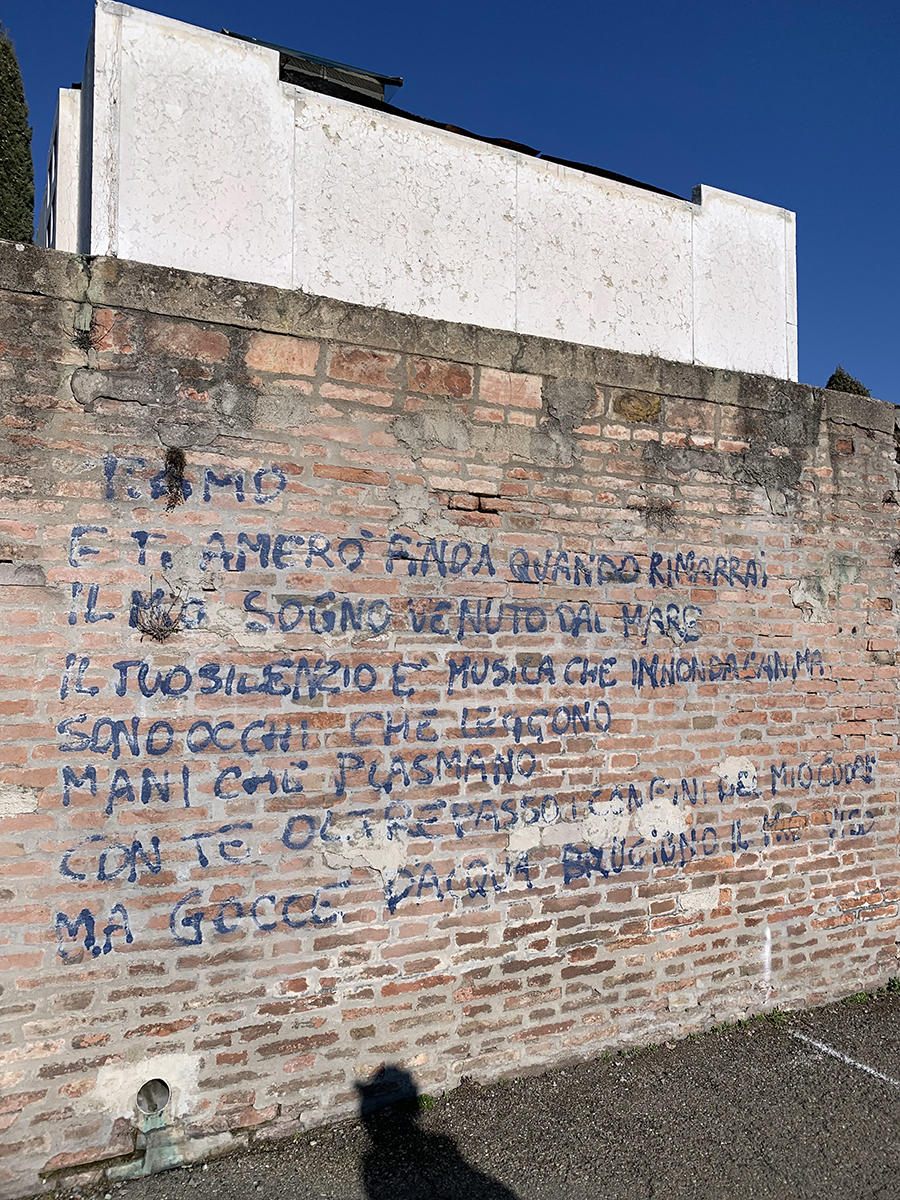 TI AMO
E TI AMERÒ FINDA QUANDO RIMARRAI
IL MIO SOGNO VENUTO DAL MARE
IL TUO SILENZIO È MUSICA CHE INNONDA L'ANIMA
SONO OCCHI CHE LEGGONO
MANI CHE PLASMANO
CON TE OLTREPASSO I CONFINI DEL MIO CUORE
MA GOCCE D'ACQUA BRUCIONO IL MIO VISO